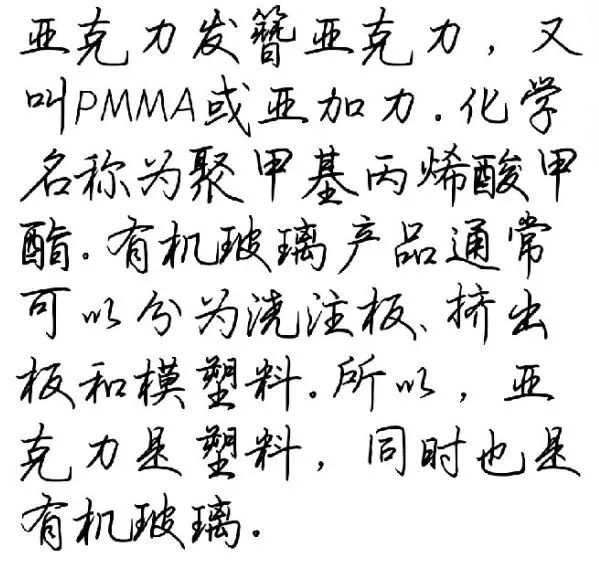 亚克力发簪亚克力，又
叫PMMA或亚加力.化学
名称为聚甲基丙烯酸甲
酯。有机玻璃产品通常
可以分为浇注板、挤出
板和模塑料.所以，亚
克力是塑料，同时也是
有机玻璃.